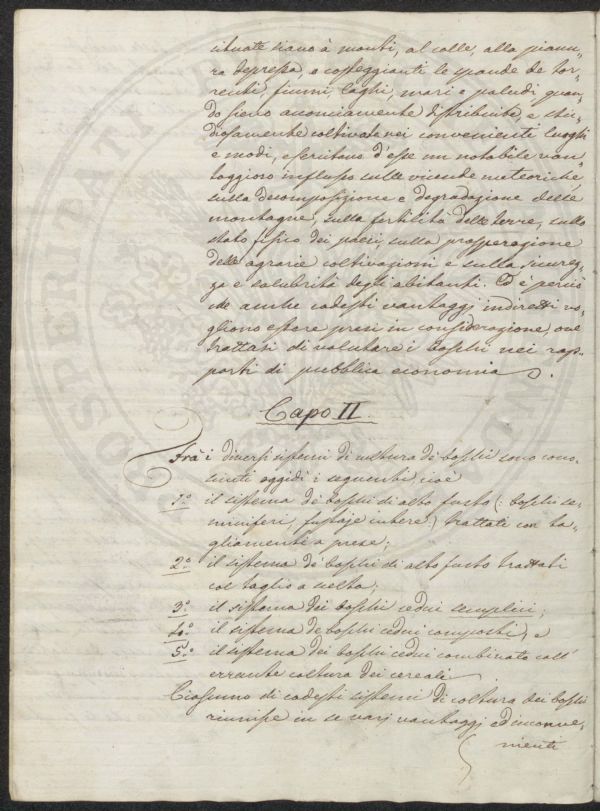 situate siano à monti, al colle, alla pianu,,
ra depressa, o costeggianti le sponde de tor,,
renti, fiumi, laghi, mari e paludi quan,,
do sieno acconciamente distribuite e stu,,
diosamente coltivate nei convenienti luoghi
e modi, esercitano d'esse un notabile van,,
taggioso influsso sulle vicende meteoriche,
sulla decomposizione e degradazione delle
montagne, sulla fertilità delle terre, sullo
stato fisico dei paesi, sulla prosperazione
delle agrarie coltivazioni e sulla sicurez,,
za e salubrità degli abitanti. Ed è perciò
che anche codesti vantaggi indiretti vo,,
gliono essere presi in considerazione, ove
trattasi di valutare i boschi nei rap,,
porti di pubblica economia.
Capo II.
Frà i diversi sistemi di coltura de boschi sono cono,,
sciuti oggidì i seguenti cioè
1.° il sistema de boschi di alto fusto (: boschi se,,
miniferi, fustaje intere :) trattati con ta,,
gliamenti a prese;
2.° il sistema de boschi di alto fusto trattati
col taglio a scelta;
3.° il sistema dei boschi cedui semplici;
4.° il sistema de boschi cedui composti, e
5.° il sistema dei boschi cedui combinato coll'
errante coltura dei cereali.
Ciascuno di codesti sistemi di coltura dei boschi
riunisce in se varj vantaggi ed inconve,,
nienti
PROSPERITATI